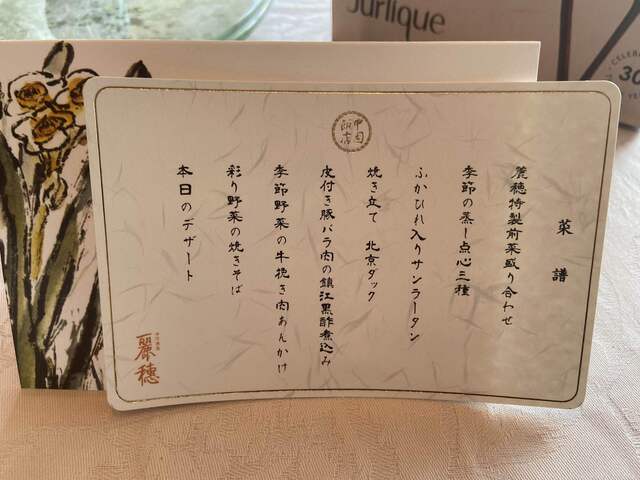 Jurlique
CELEBR
30
菜譜
麗穂特製前菜盛り合わせ
季節の蒸し点心三種
ふかひれ入りサンラータン
焼き立て 北京ダック
皮付き豚バラ肉の鎮江黒酢煮込み
季節野菜の牛挽き肉あんかけ
彩り野菜の焼きそば
本日のデザート
麗穂